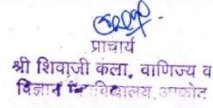 प्राचार्य
श्री शिवाजी कला, वाणिज्य व
विज्ञान महाविद्यालय, अकोट